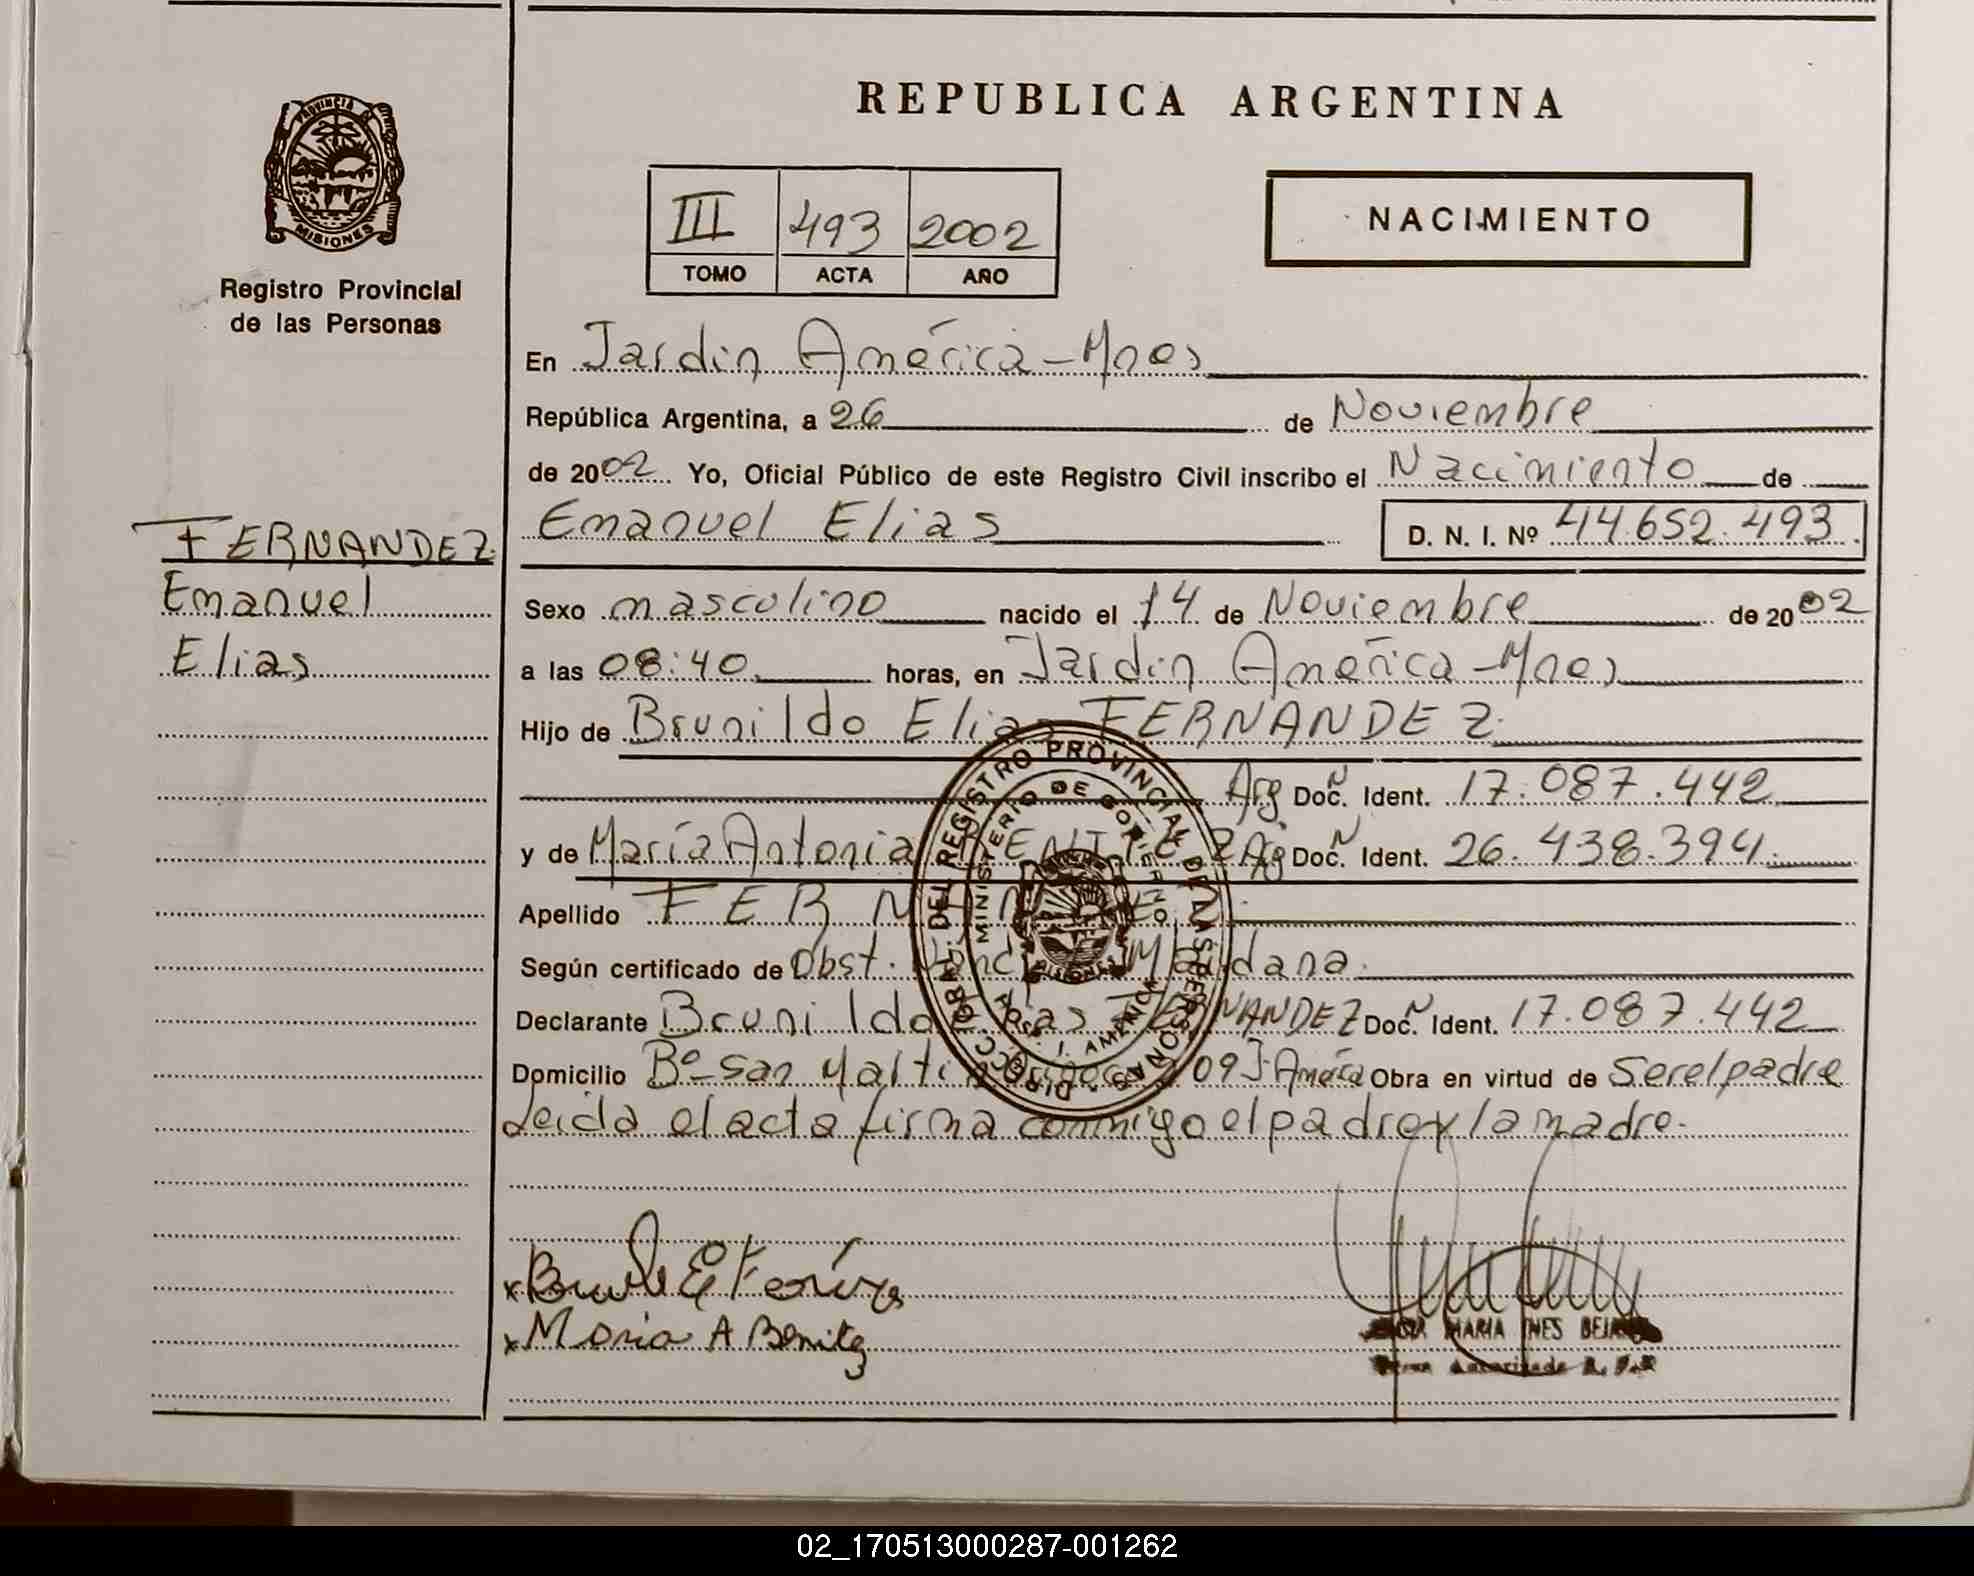 REPUBLICA ARGENTINA
PROVINCIA DE
MISIONES
Registro Provincial
de las Personas
III 493 2002
TOMO ACTA AÑO
NACIMIENTO
En Jardin América-Mnes
República Argentina, a 26 de Noviembre
de 2002 Yo, Oficial Público de este Registro Civil inscribo el Nacimiento de
Emanuel Elias D. N. I. Nº 44.652.493.
FERNANDEZ
Emanuel
Elias
Sexo masculino nacido el 14 de Noviembre de 2002
a las 08:40 horas, en Jardin América-Mnes
Hijo de Brunildo Elias FERNANDEZ
Arg Doc. Ident. 17.087.442
y de María Antonia BENITEZ Arg Doc. Ident. 26.438.394.
Apellido FERNANDEZ
Según certificado de Obst. Maidana.
Declarante Brunildo Elias FERNANDEZ Doc. Ident. 17.087.442
Domicilio Bº San Martin 09 J. América Obra en virtud de Ser el padre
Leida el acta firma conmigo el padre y la madre.
DIRECC. GRAL. DEL REGISTRO PROVINCIAL DE LAS PERSONAS
MINISTERIO DE GOBIERNO
MISIONES
J. AMERICA
Maria A Benitez
MARIA INES
Autorizada
02_170513000287-001262